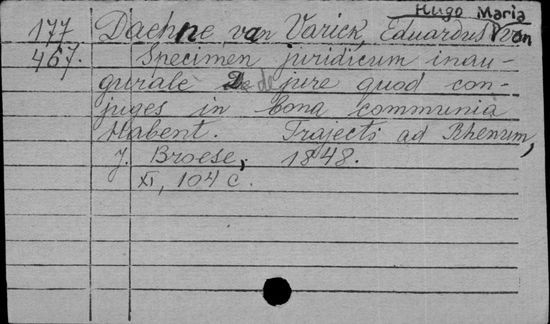 Hugo Maria
177 Daehne van Varick, Eduardus Van
467. Specimen juridicum inau-
gurale De de jure quod con-
juges in bona communia
Habent. Trajecti ad Rhenum,
J. Broese, 1848.
XI, 104 c.